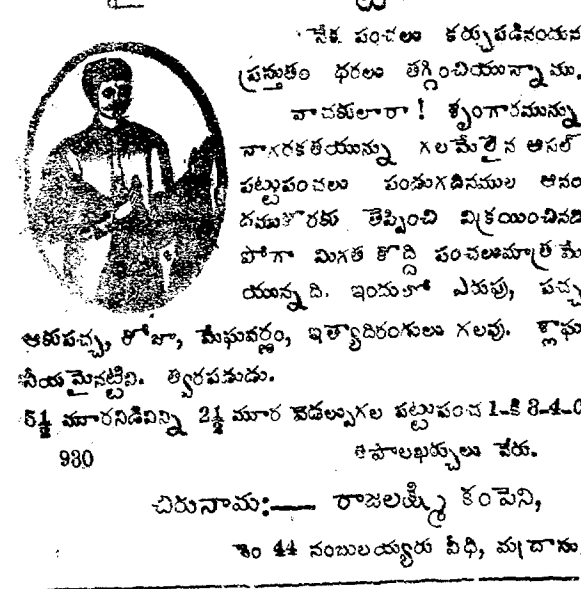 నేక పంచలు కర్చుపడినందున
ప్రస్తుతం ధరలు తగ్గించియున్నాము.
వాచకులారా! శృంగారమున్ను
నాగరకతయున్ను గలమేలైన ఆసల్
పట్టుపంచలు పండుగదినముల ఆనం
దముకొరకు తెప్పించి విక్రయించినది
పోగా మిగత కొద్ది పంచలుమాత్రమే
యున్నది. ఇందులో ఎరుపు, పచ్చ
ఆకుపచ్చ, రోజా, మేఘవర్ణం, ఇత్యాదిరంగులు గలవు. శ్లాఘ
నీయమైనట్టివి. త్వరపడుడు.
5½ మూరనిడివిన్ని 2½ మూర వెడల్పుగల పట్టుపంచ 1-కి 3-4-0
930 తపాలఖర్చులు వేరు.
చిరునామ:— రాజలక్ష్మి కంపెని,
44 నంబులయ్యరు వీధి, మద్రాసు